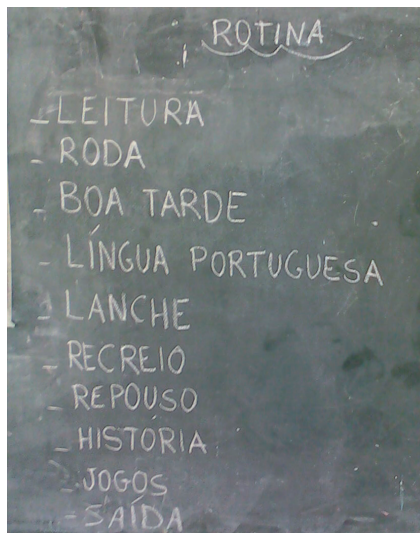 ROTINA
- LEITURA
- RODA
- BOA TARDE
- LÍNGUA PORTUGUESA
- LANCHE
- RECREIO
- REPOUSO
- HISTORIA
- JOGOS
- SAÍDA